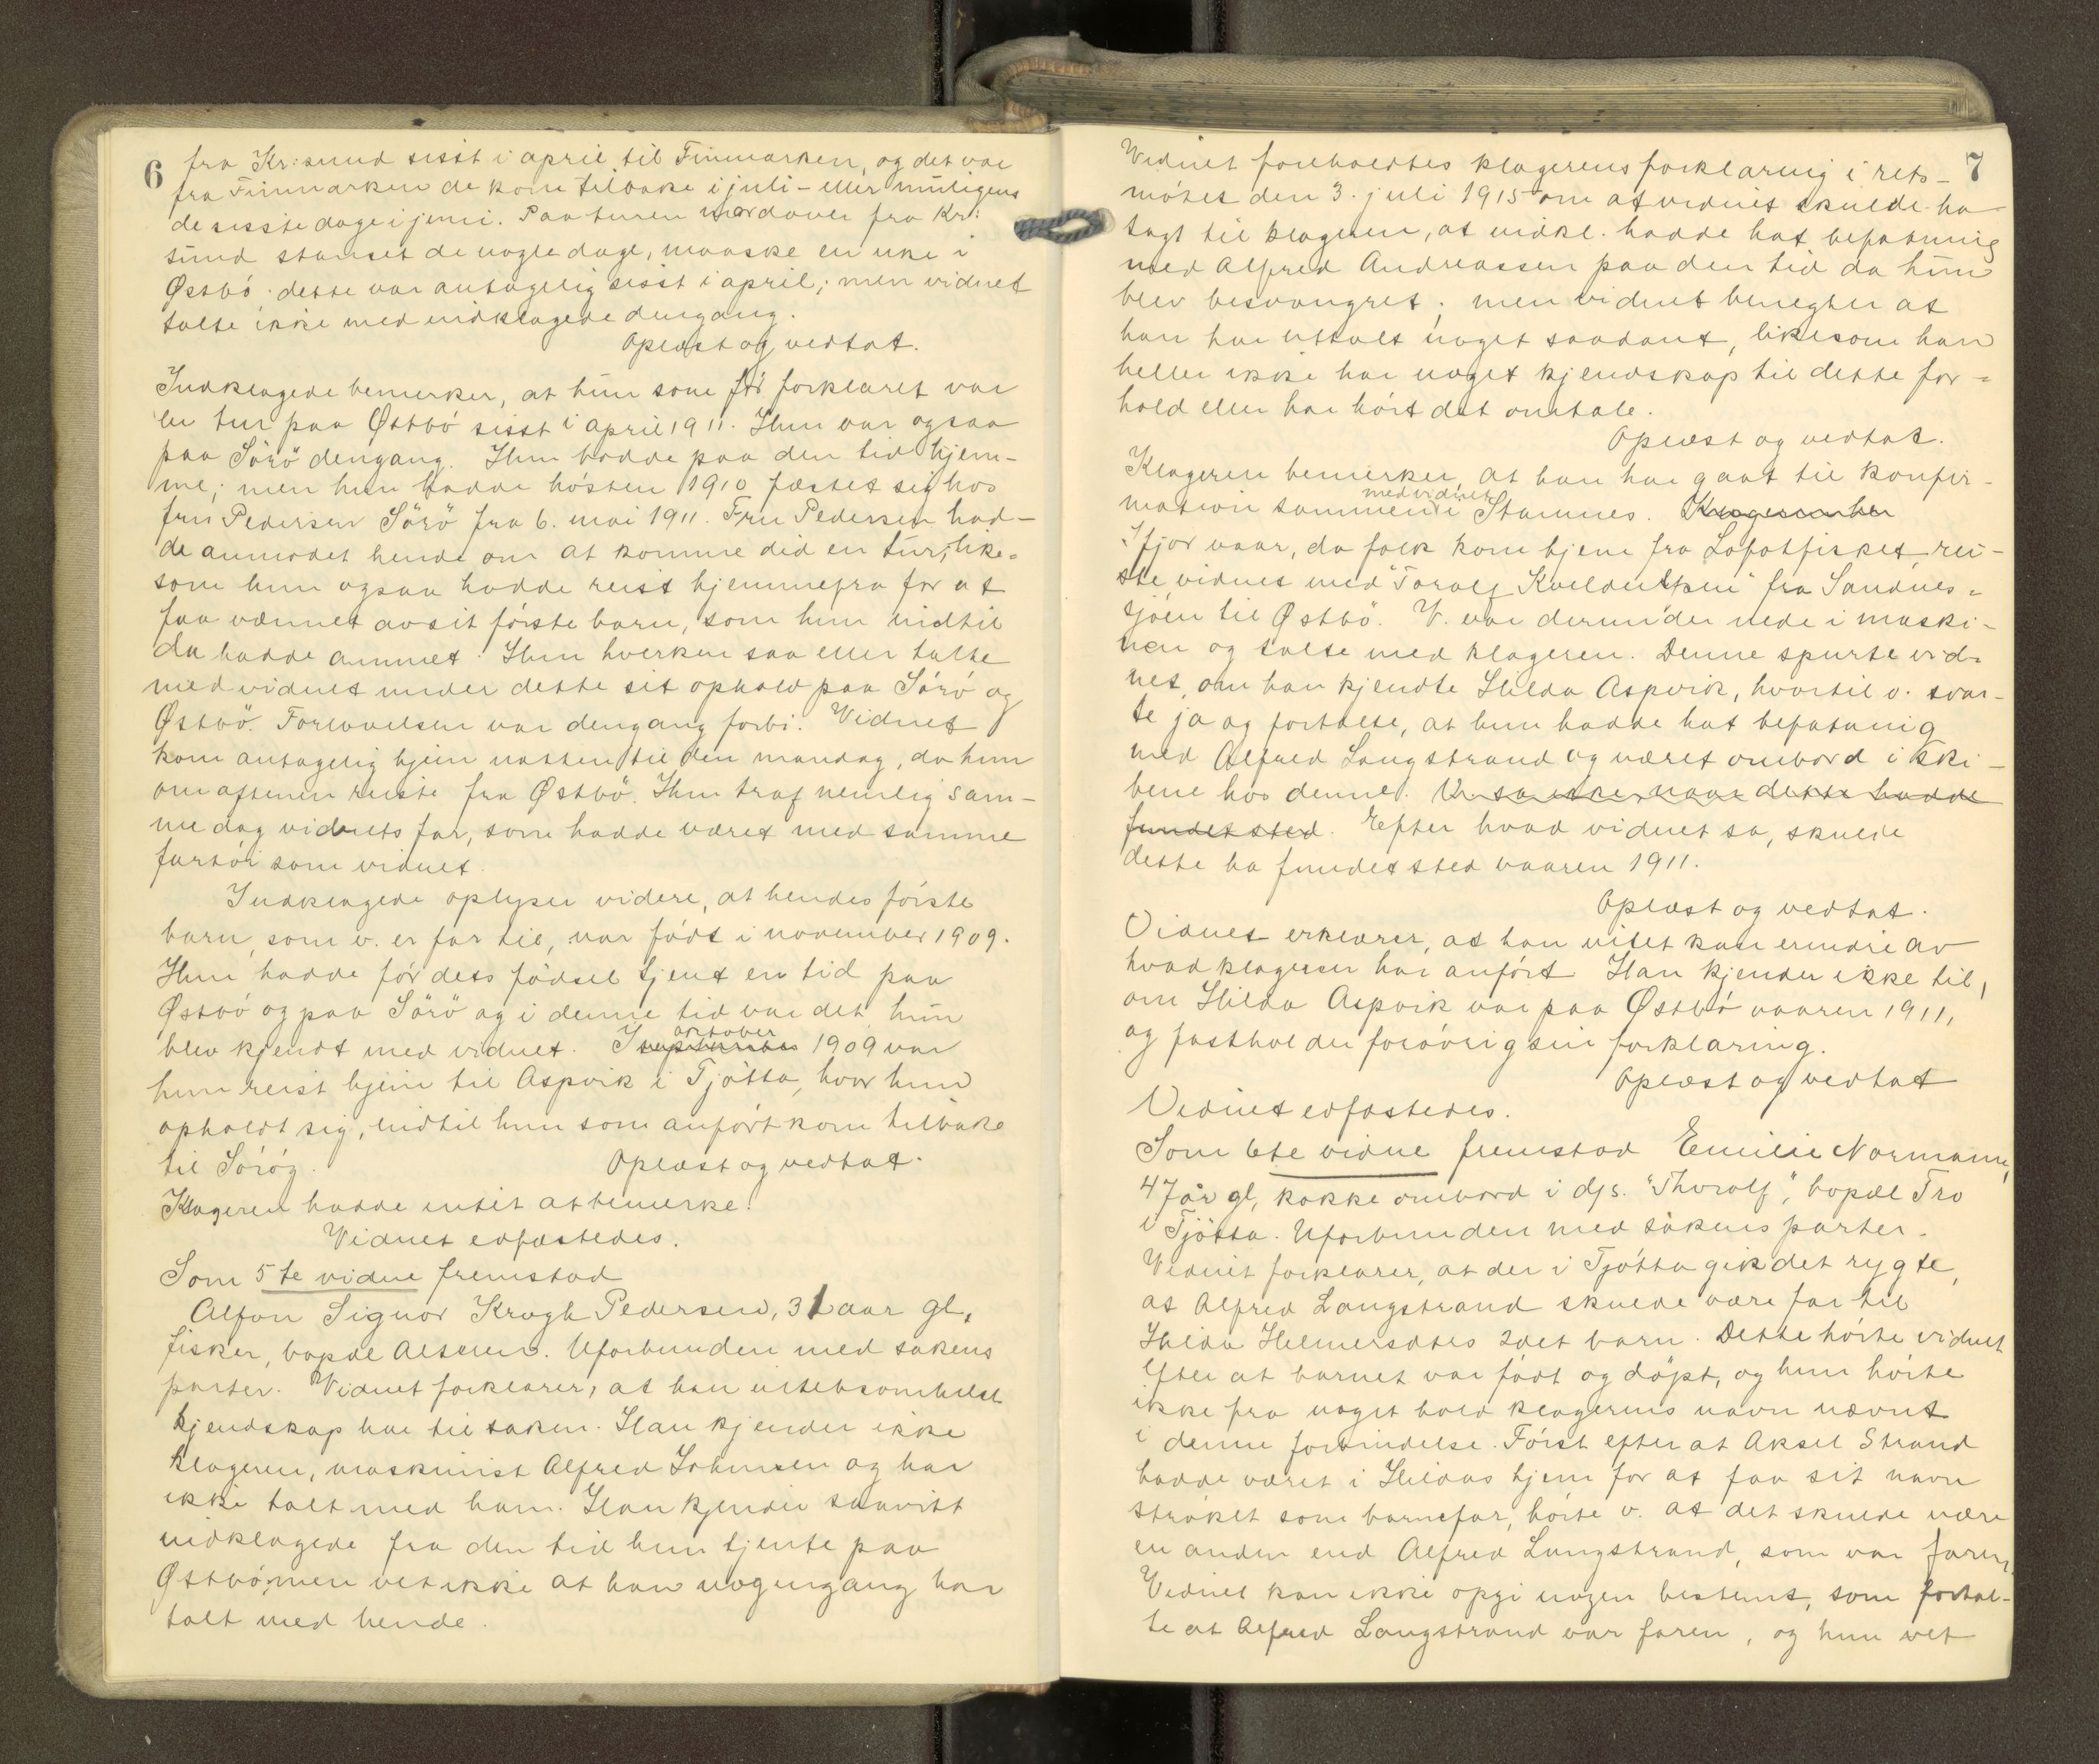 6
fra Kr:sund sisst i april til Finmarken, og det var
fra Finmarken de kom tilbake i juli - eller muligens
de sisste dage i juni. Paa turen nordover fra Kr:
sund stanset de nogle dage, maaske en uke i
Østbö; dette var antagelig sisst i april; men vidnet
talte ikke med indklagede dengang.
Oplæst og vedtat.
Indklagede bemerker, at hun som för forklaret var
en tur paa Østbö sisst i april 1911. Hun var ogsaa
paa Sörö dengang. Hun hadde paa den tid hjem-
me; men hun hadde hösten 1910 fæstet sig hos
fru Pedersen Sörö fra 6. mai 1911. Fru Pedersen had-
de anmodet hende om at komme did en tur, like-
som hun ogsaa hadde reist hjemmefra for at
faa vænnet av sit förste barn, som hun indtil
da hadde ammet. Hun hverken saa eller talte
med vidnet under dette sit ophold paa Sörö og
Østbö. Forlovelsen var dengang forbi. Vidnet
kom antagelig hjem natten til den mandag, da hun
om aftenen reiste fra Østbö. Hun traf nemlig sam-
me dag vidnets far, som hadde været med samme
fartöi som vidnet.
Indklagede oplyser videre, at hendes förste
barn, som v. er far til, var födt i november 1909.
Hun hadde för dets födsel tjent en tid paa
Østbö og paa Sörö og i denne tid var det hun
blev kjendt med vidnet. I september oktober 1909 var
hun reist hjem til Aspvik i Tjötta, hvor hun
opholdt sig, indtil hun som anfört kom tilbake
til Söröy. Oplæst og vedtat.
Klageren hadde intet at bemerke.
Vidnet edfæstedes.
Som 5te vidne fremstod
Alfon Signor Krogh Pedersen, 31 aar gl,
fisker, bopæl Alsten. Uforbunden med sakens
parter. Vidnet forklarer, at han intetsomhelst
kjendskap har til saken. Han kjender ikke
klageren, maskinist Alfred Johnsen og har
ikke talt med ham. Han kjender saavitt
indklagede fra den tid hun tjente paa
Østbö, men vet ikke at han nogengang har
talt med hende.
7
Vidnet foreholdtes klagerens forklaring i rets-
mötet den 3. juli 1915 om at vidnet skulde ha
sagt til klageren, at indkl. hadde hat befatning
med Alfred Andreassen paa den tid da hun
blev besvangret; men vidnet benegter at
han har uttalt noget saadant, likesom han
heller ikke har noget kjendskap til dette for-
hold eller har hört det omtale.
Oplæst og vedtat.
Klageren bemerker, at han har gaat til konfir-
mation sammen med vidnet i Stamnes.
Ifjor vaar, da folk kom hjem fra Lofotfisket, rei-
ste vidnet med "Toralf Kveldulfsen" fra Sandnes-
sjöen til Østbö. V. var derunder nede i maski-
nen og talte med klageren. Denne spurte vid-
net, om han kjendte Hilda Aspvik, hvortil v. svar-
te ja og fortalte, at hun hadde hat befatning
med Alfred Langstrand og været ombord i ski-
bene hos denne. V. sa ikke, naar dette hadde
fundet sted. Efter hvad vidnet sa, skulde
dette ha fundet sted vaaren 1911.
Oplæst og vedtat.
Vidnet erklærer, at han intet kan erindre av
hvad klageren har anfört. Han kjender ikke til,
om Hilda Aspvik var paa Østbö vaaren 1911,
og fastholder forövrig sin forklaring.
Oplæst og vedtat
Vidnet edfæstedes.
Som 6te vidne fremstod Emilie Normann,
47 år gl, kokke ombord i d/s. "Thorolf", bopæl Tro
i Tjötta. Uforbunden med sakens parter.
Vidnet forklarer, at der i Tjötta gik det rygte,
at Alfred Langstrand skulde være far til
Hilda Helmersdtrs 2det barn. Dette hörte vidnet
efter at barnet var födt og döpt, og hun hörte
ikke fra noget hold klagerens navn nævnt
i denne forbindelse. Först efter at Aksel Strand
hadde været i Hildas hjem for at faa sit navn
ströket som barnefar, hörte v. at det skulde være
en anden end Alfred Langstrand, som var faren.
Vidnet kan ikke opgi nogen bestemt, som fortal-
te at Alfred Langstrand var faren, og hun vet